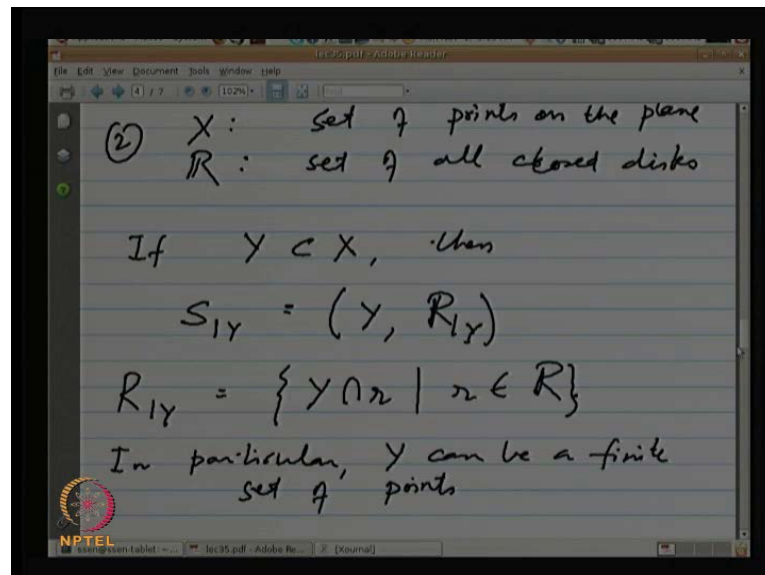 lec35.pdf - Adobe Reader
File Edit View Document Tools Window Help
4 / 7 102% Find
② X : set of points on the plane
R : set of all closed disks
If Y ⊂ X, then
S|Y = (Y, R|Y)
R|Y = { Y ∩ r | r ∈ R }
In particular, Y can be a finite
set of points
NPTEL
ssen@ssen-tablet: ~... lec35.pdf - Adobe Re... [Xournal]